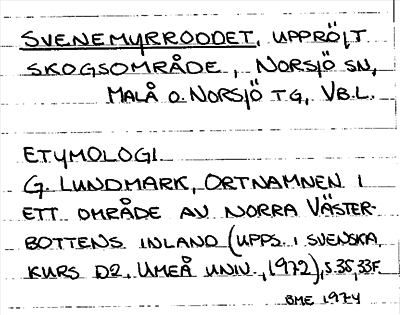 SVENEMYRROODET, UPPRÖJT
SKOGSOMRÅDE, NORSJÖ SN,
MALÅ O. NORSJÖ TG, VB.L.
ETYMOLOGI
G. LUNDMARK, ORTNAMNEN I
ETT OMRÅDE AV NORRA VÄSTER-
BOTTENS INLAND (UPPS. I SVENSKA,
KURS D2. UMEÅ UNIV., 1972), S. 35, 33F.
BME 1974